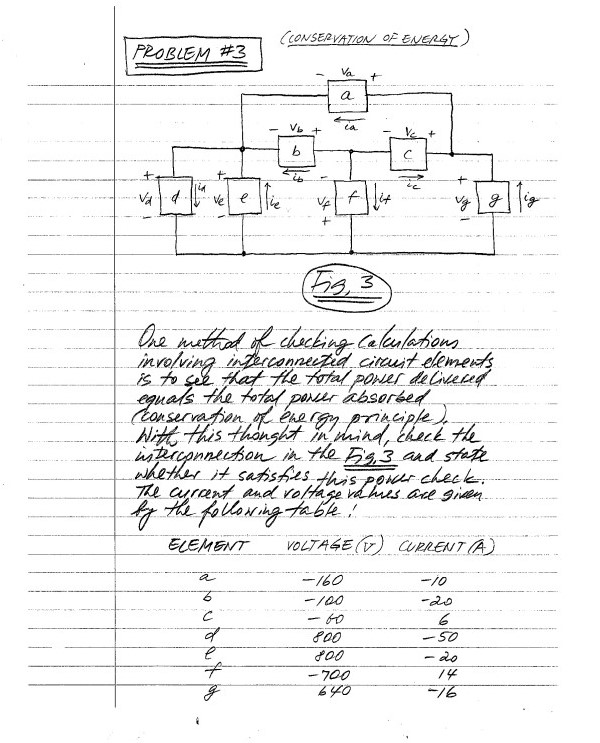 (CONSERVATION OF ENERGY)
PROBLEM #3
- Va +
a
ia
- Vb +
b
ib
- Vc +
c
ic
+ Vd -
d
id
+ Ve -
e
ie
- Vf +
f
if
+ Vg -
g
ig
Fig. 3
One method of checking Calculations
involving interconnected circuit elements
is to see that the total power delivered
equals the total power absorbed
(conservation of energy principle).
With this thought in mind, check the
interconnection in the Fig. 3 and state
whether it satisfies this power check.
The current and voltage values are given
by the following table:
ELEMENT VOLTAGE (V) CURRENT (A)
a -160 -10
b -100 -20
c -60 6
d 800 -50
e 800 -20
f -700 14
g 640 -16